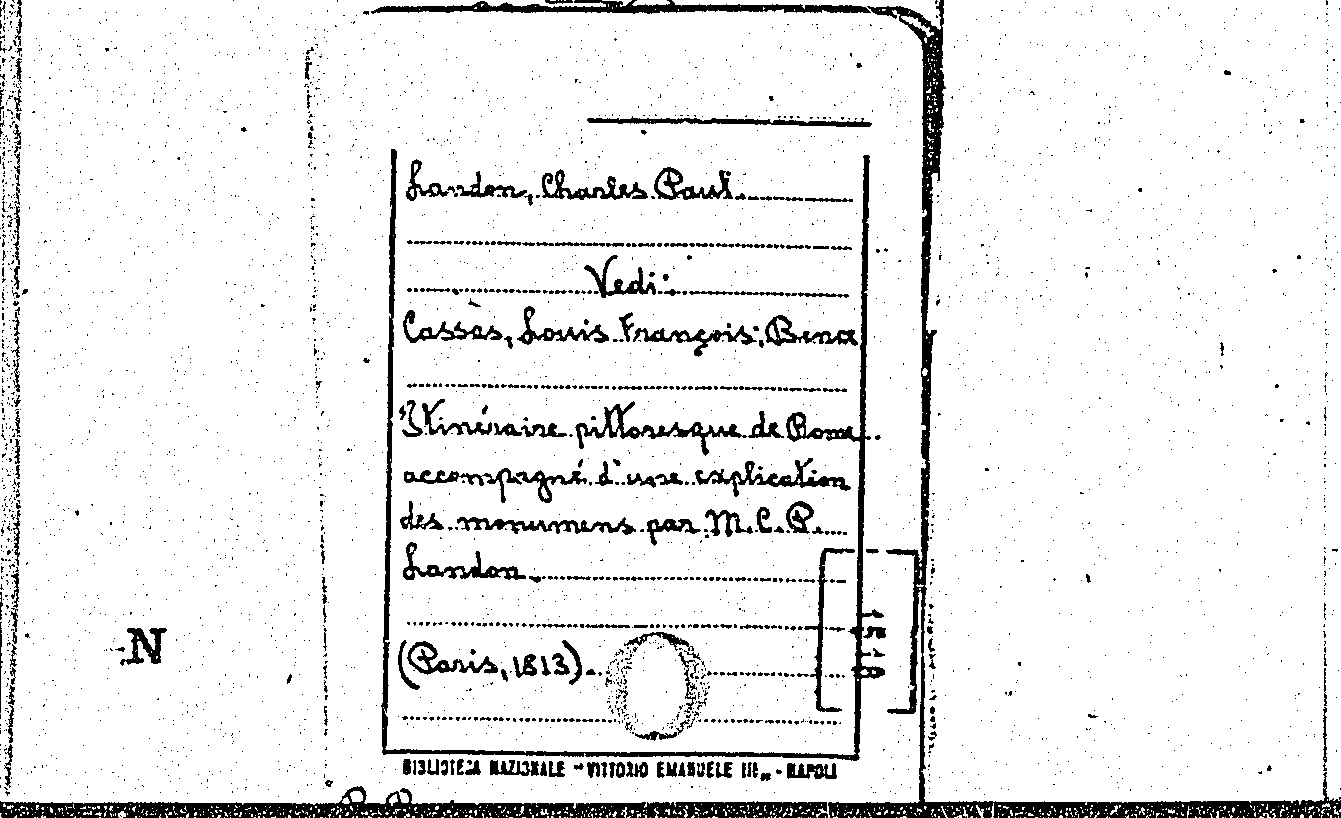 Landon, Charles Paul.
Vedi:
Cassas, Louis François; Bena
Itinéraire pittoresque de Rome
accompagné d'une explication
des monumens par M.C.P.
Landon.
N
(Paris, 1813).
BIBLIOTECA NAZIONALE "VITTORIO EMANUELE III" - NAPOLI